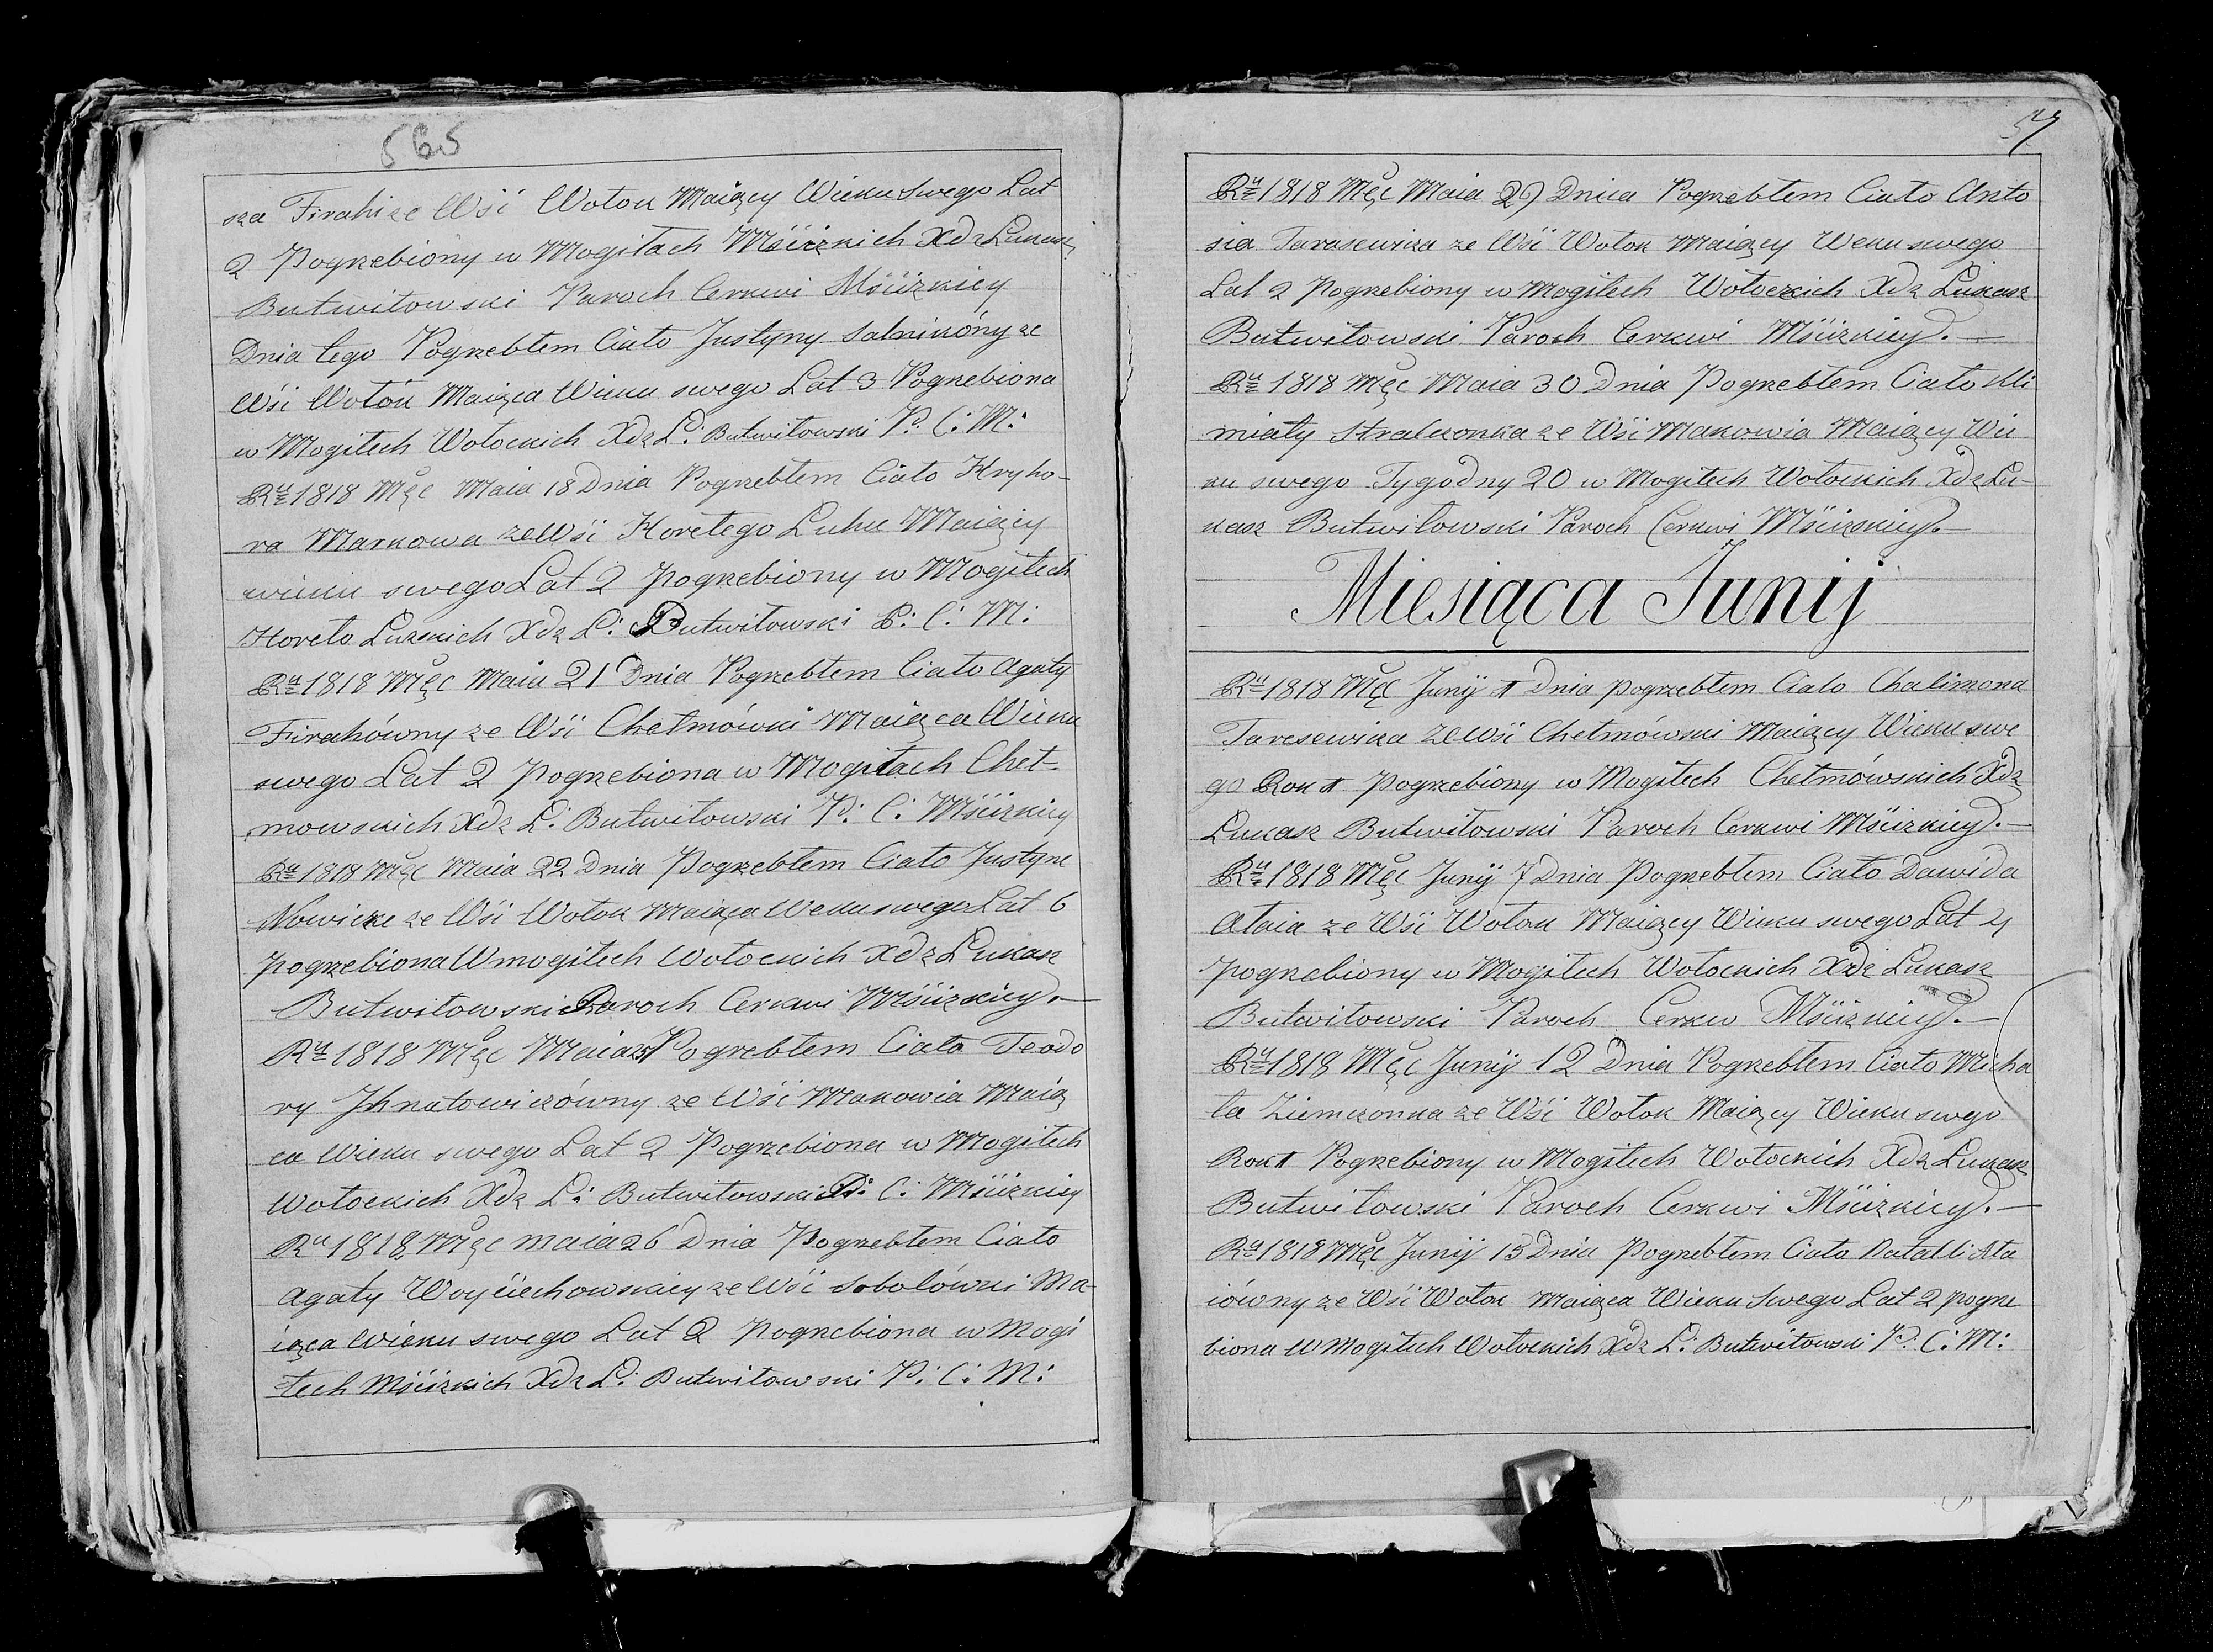 565
sza Firahi ze Wśi Wołok Maiący Wieku Swego Lat
2 Pogrzebiony w Mogiłach Mściżkich Xdz Łukasz
Butwiłowski Paroch Cerkwi Mściżkiey
Dnia tego Pogrzebłem Ciało Justyny Salnikóny ze
Wśi Wołók Maiąca Wieku swego Lat 3 Pogrzebiona
w Mogiłech Wołockich Xdz Ł: Butwiłowski P: C: M:
Ru 1818 Męc Maia 18 Dnia Pogrzebłem Ciało Hryho-
ra Markowa ze Wśi Horełego Łuhu Maiący
wieku swego Lat 2 pogrzebiony w Mogiłech
Horeło Łuzkich Xdz Ł: Butwiłowski P: C: M:
Ru 1818 Męc Maia 21 Dnia Pogrzebłem Ciało Agaty
Firahówny ze Wśi Chełmówki Maiąca Wieku
swego Lat 2 Pogrzebiona w Mogiłach Cheł-
mowskich Xdz Ł: Butwiłowski P: C: Mściżkiey
Ru 1818 Męc Maia 22 Dnia Pogrzebłem Ciało Justyne
Nowicke ze Wśi Wołok Maiąca Weku swego Lat 6
pogrzebiona W mogiłech Wołockich Xdz Łukasz
Butwiłowski Paroch Cerkwi Mściżkiey.—
Ru 1818 Męc Maia 25 Pogrzebłem Ciało Teodo
ry Jhnatowiczówny ze Wśi Makowia Maią
ca Wieku swego Lat 2 Pogrzebiona w Mogiłech
Wołockich Xdz Ł: Butwiłowski P: C: Mściżkiey
Ru 1818 Męc maia 26 Dnia Pogrzebłem Ciało
Agaty Woyciechowskiey ze Wśi Sobolówki Ma-
iąca Wieku swego Lat 2 Pogrzebiona w Mogi
łech Mściżkich Xdz Ł: Butwiłowski P: C: M:
57
Ru 1818 Męc Maia 29 Dnia Pogrzebłem Ciało Anto
sia Tarasewicza ze Wśi Wołok Maiący Weku swego
Lat 2 Pogrzebiony w Mogiłech Wołockich Xdz Łukasz
Butwiłowski Paroch Cerkwi Mściżkiey.—
Ru 1818 Męc Maia 30 Dnia Pogrzebłem Ciało Mi
miały Stralczonka ze Wśi Makowia Maiący Wie
ku swego Tygodny 20 w Mogiłech Wołockich Xdz Łu-
kasz Butwiłowski Paroch Cerkwi Mściżskiey.—
Miesiąca Junij
Ru 1818 Męc Junij 1 Dnia pogrzebłem Ciało Chalimona
Taresewicza ze Wśi Chełmówki Maiący Wieku swe
go Rok 1 Pogrzebiony w Mogiłech Chełmówskich Xdz
Łukasz Butwiłowski Paroch Cerkwi Mściżkiey.—
Ru 1818 Męc Junij 7 Dnia Pogrzebłem Ciało Dawida
Ałaia ze Wśi Wołok Maiący Wieku swego Lat 4
pogrzebiony w Mogiłech Wołockich Xdz Łukasz
Butwiłowski Paroch Cerkw Mściżkiey.—
Ru 1818 Męc Junij 12 Dnia Pogrzebłem Ciało Micha
ła Ziemczonka ze Wśi Wołok Maiący Wieku swego
Rok 1 Pogrzebiony w Mogiłech Wołockich Xdz Łukasz
Butwiłowski Paroch Cerkwi Mściżkiey.—
Ru 1818 Męc Junij 15 Dnia Pogrzebłem Ciało Natalli Ała
iówny ze Wśi Wołok Maiąca Wieku Swego Lat 2 pogrze
biona W Mogiłech Wołockich Xdz Ł: Butwiłowski P: C: M: